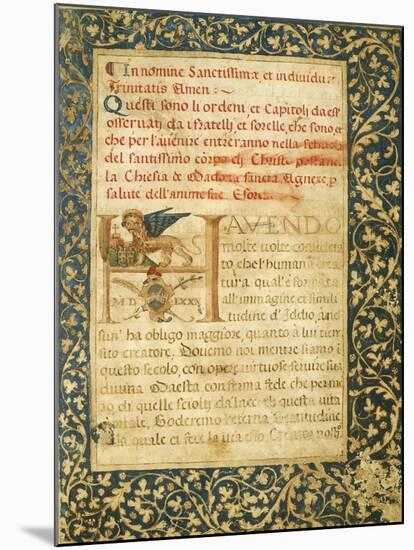 In nomine Sanctissimæ, et individuæ
Trinitatis Amen.
Questi sono li ordeni, et Capitoli da esser
osservati da i fratelli, et sorelle, che sono, et
che per l'avenire entreranno nella schuola
del santissimo corpo di Christo posta ne
la Chiesia de Madona sancta Agnexe, per
salute dell'anime sue
HAVENDO
molte volte considera
to che l'humana crea
tura qual'è formata
all'immagine et simili
tudine d'Iddio,
M D LXXI
sun'ha obligo maggiore, quanto à lui
suo creatore. Dovemo noi mentre siamo in
questo secolo, con opere virtuose servire sua
divina Maestà con ferma fede che
di quelle sciolti da lacci di questa vita
mortale, Goderemo l'eterna beatitudine
la quale